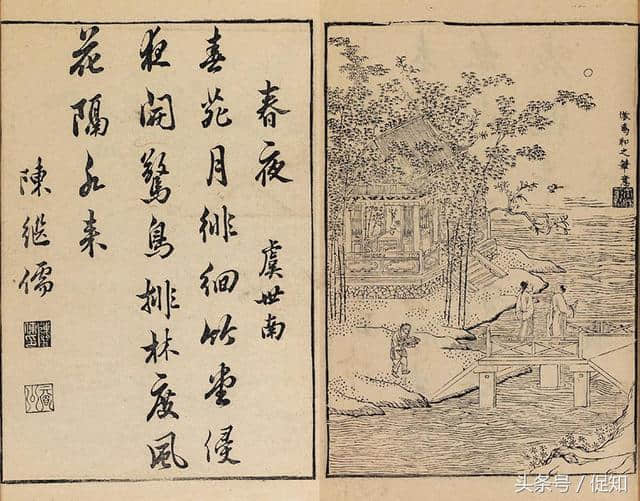 春夜
虞世南
春苑月徘徊竹堂侵
夜開驚鳥排林度風
花隔水来
陳継儒
倣馬和之筆意
头条号 / 促知